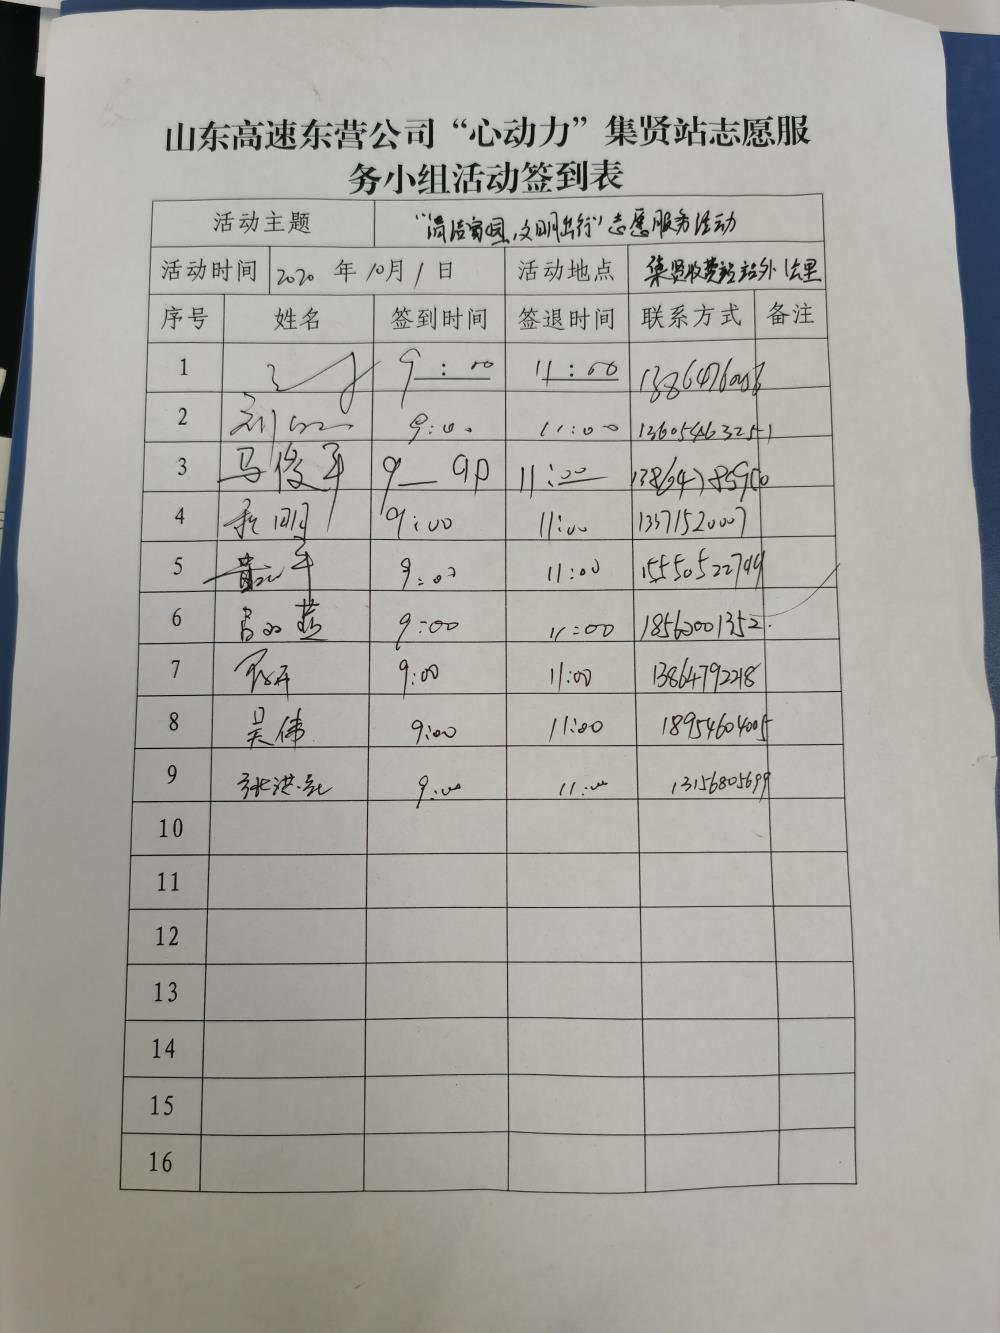 山东高速东营公司“心动力”集贤站志愿服
务小组活动签到表
活动主题 “清洁家园,文明出行”志愿服务活动
活动时间 2020 年 10月 1 日 活动地点 集贤收费站站外
序号 姓名 签到时间 签退时间 联系方式 备注
1 9:00 11:00
2 9:00 11:00 13605463251
3 马俊平 11:00
4 9:00 11:00 13371520007
5 9:00 11:00 15550522799
6 9:00 11:00 18562001352
7 9:00 11:00 13864792218
8 吴伟 9:00 11:00 18954604005
9 9:00 11:00 13156805699
10
11
12
13
14
15
16